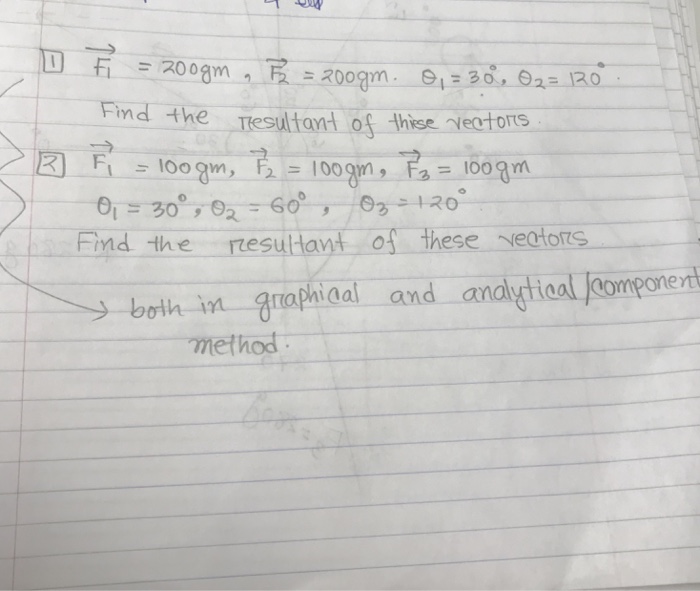 1 F₁ = 200gm, F₂ = 200gm. θ₁ = 30°, θ₂ = 120°.
Find the resultant of these vectors.
2 F₁ = 100gm, F₂ = 100gm, F₃ = 100gm
θ₁ = 30°, θ₂ = 60°, θ₃ = 120°
Find the resultant of these vectors
→ both in graphical and analytical/component
method.